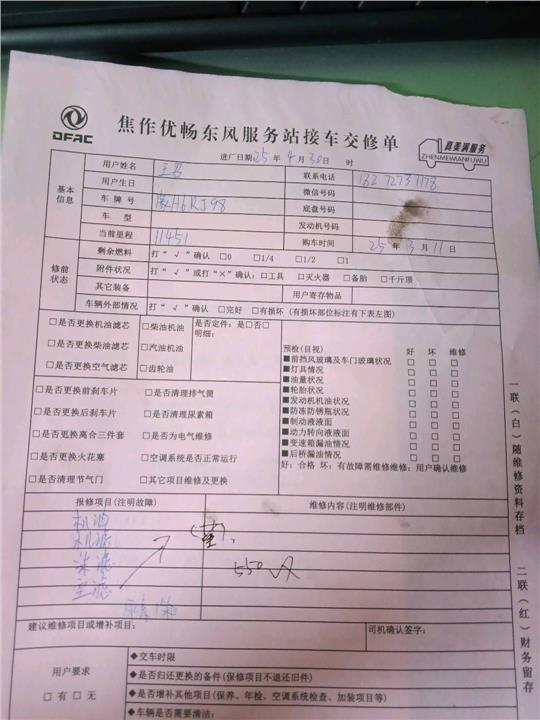 DFAC
焦作优畅东风服务站接车交修单
真美满服务
ZHENMEIMANFUWU
进厂日期25年4月30日 时
基本信息
用户姓名 联系电话
用户生日 微信号码
车牌号 H6RJ98 底盘号码
车型 发动机号码
当前里程 11451 购车时间 25年3月11日
修前状态
剩余燃料 打"√"确认 □0 □1/4 □1/2 □1
附件状况 打"√"或打"×"确认:□工具 □灭火器 □备胎 □千斤顶
其它装备 用户寄存物品
车辆外部情况 打"√"确认 □完好 □有损坏(有损坏部位标注有下表左图)
□是否更换机油滤芯 □柴油机油 是否定件:是□否□
明细:
□是否更换柴油滤芯 □汽油机油
□是否更换空气滤芯 □齿轮油
预检(目视) 好 坏 维修
■前挡风玻璃及车门玻璃状况 □ □ □
■灯具情况 □ □ □
■油量状况 □ □ □
■轮胎状况 □ □ □
■发动机机油状况 □ □ □
■防冻防锈瓶状况 □ □ □
■制动液液面 □ □ □
■动力转向液液面 □ □ □
■变速箱漏油情况 □ □ □
■后桥漏油情况 □ □ □
好:合格 坏:有故障需维修维修:用户确认维修
□是否更换前刹车片 □是否清理排气筒
□是否更换后刹车片 □是否清理尿素箱
□是否更换离合三件套 □是否为电气维修
□是否更换火花塞 □空调系统是否正常运行
□是否清理节气门 □其它项目维修及更换
报修项目(注明故障) 维修内容(注明维修部件)
机油
机滤
柴滤
空滤
550
建议维修项目或增补项目: 司机确认签字:
用户要求
□有□无
◆交车时限
◆是否归还更换的备件(保修项目不退还旧件)
◆是否增补其他项目(保养、年检、空调系统检查、加装项目等)
◆车辆是否需要清洁:
一联(白)随维修资料存档
二联(红)财务留存